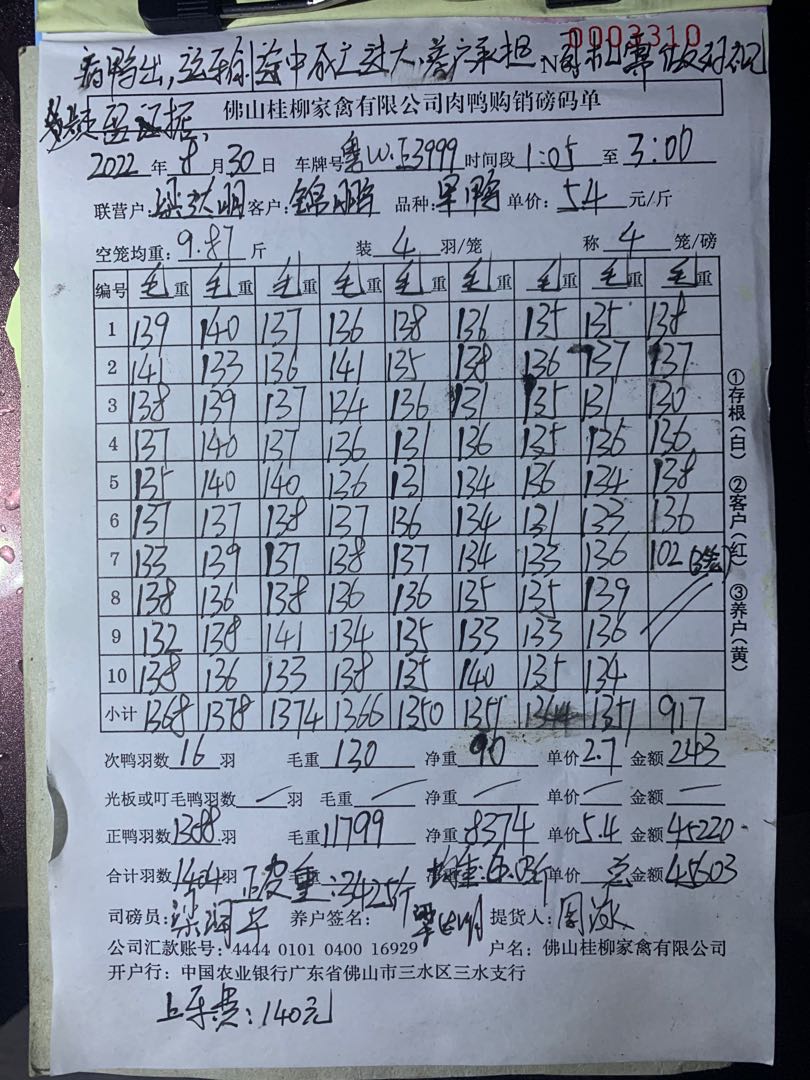 0003310
病鸭出,运车到途中死亡过大,养户承担
佛山桂柳家禽有限公司肉鸭购销磅码单
2022年8月30日 车牌号粤W·E3999 时间段1:05至3:00
联营户: 客户:锦鹏 品种: 鸭 单价:5.4元/斤
空笼均重:9.87斤 装4羽/笼 称4笼/磅
编号 毛重 毛重 毛重 毛重 毛重 毛重 毛重 毛重 毛重
1 139 140 137 136 138 136 135 135 138
2 141 133 136 141 135 138 136 137 137
3 138 139 137 134 136 131 135 131 130
4 137 140 137 136 131 136 135 136 136
5 135 140 140 136 131 134 136 134 138
6 137 137 138 137 136 134 131 133 136
7 133 139 137 138 137 134 133 136 102 (3笼)
8 138 136 138 136 136 135 135 139
9 132 138 141 134 135 133 133 136
10 138 136 133 138 135 140 135 134
小计 1368 1378 1374 1366 1350 1351 1344 1351 917
次鸭羽数16羽 毛重130 净重90 单价2.7 金额243
光板或叮毛鸭羽数 羽 毛重 净重 单价 金额
正鸭羽数1388羽 毛重11799 净重8374 单价5.4 金额45220
合计羽数1404羽 正皮重:3425斤 均重:6.03斤 单价 总金额45603
司磅员: 养户签名: 提货人:
公司汇款账号:4444 0101 0400 16929 户名:佛山桂柳家禽有限公司
开户行:中国农业银行广东省佛山市三水区三水支行
上车费:140元
①存根(白) ②客户(红) ③养户(黄)